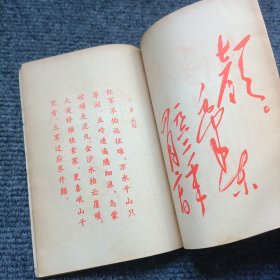 颜
毛泽东
一九六二年
七律 长征
红军不怕远征难，万水千山只
等闲。五岭逶迤腾细浪，乌蒙
磅礴走泥丸。金沙水拍云崖暖，
大渡桥横铁索寒。更喜岷山千
里雪，三军过后尽开颜。